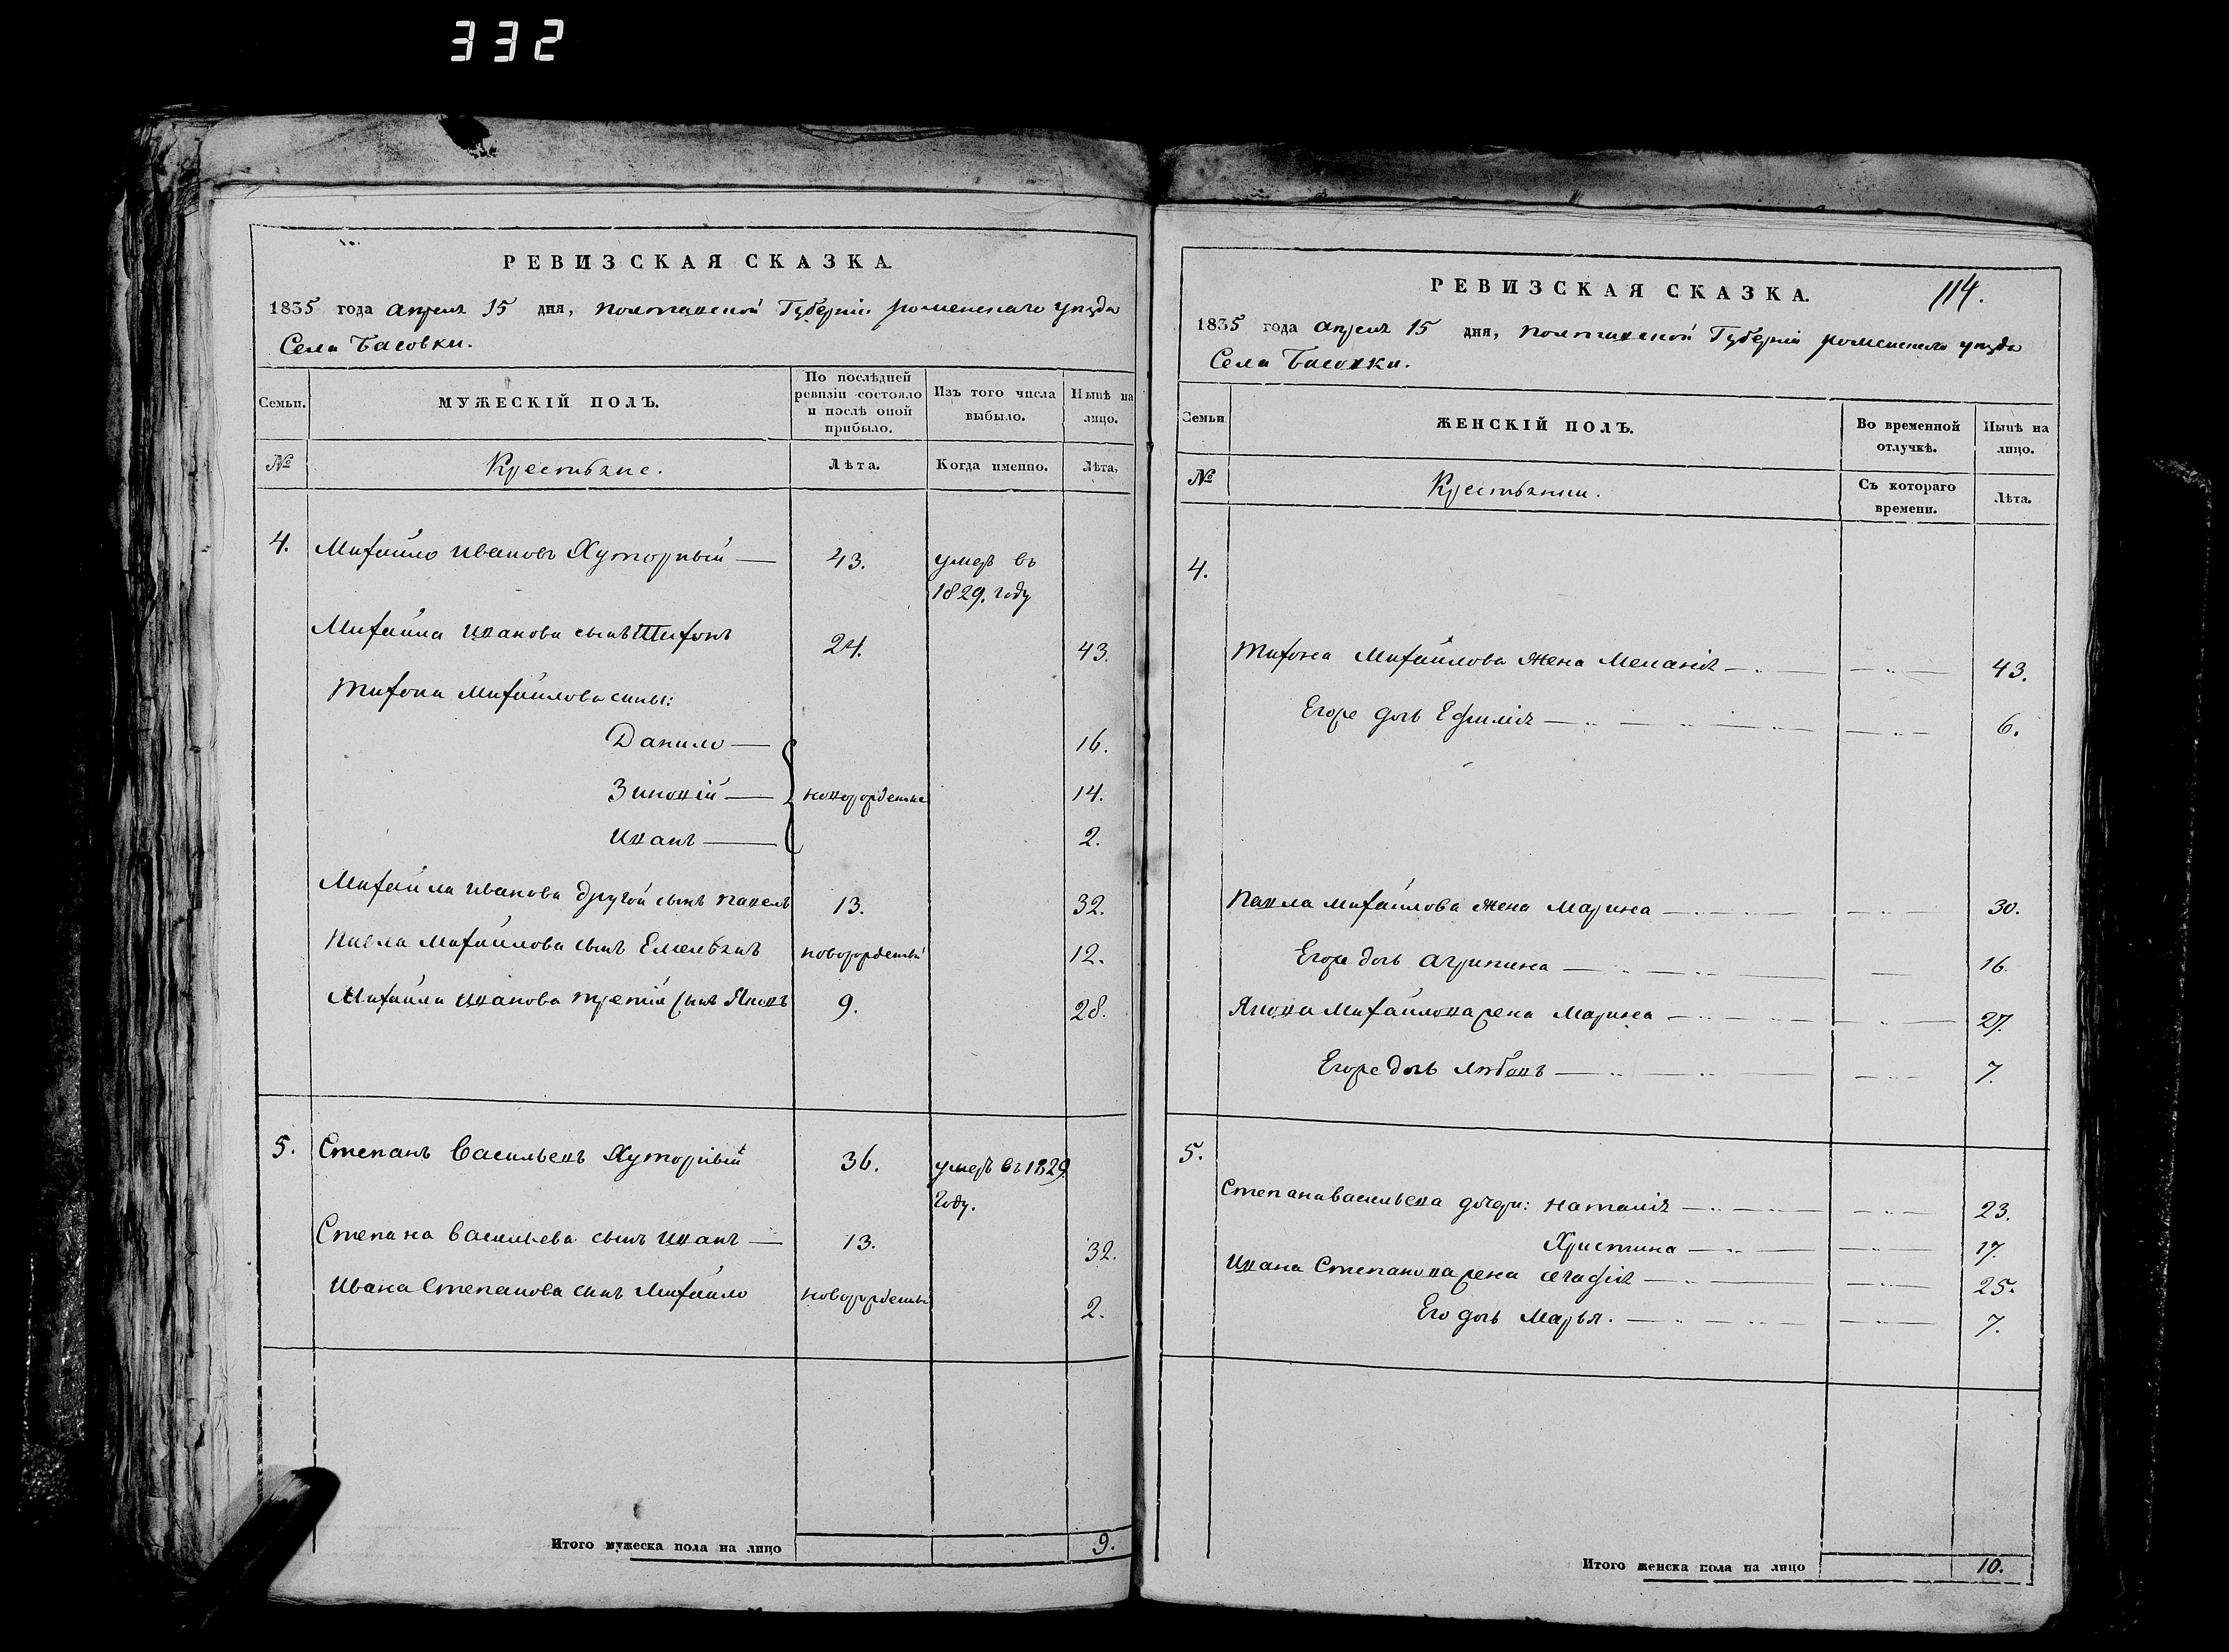 332
РЕВИЗСКАЯ СКАЗКА.
1835 года апреля 15 дня, Полтавской Губерніи роменскаго уезда
Села Басовки.
Семьи. МУЖЕСКІЙ ПОЛЪ. По послѣдней ревизіи состояло и послѣ оной прибыло. Изъ того числа выбыло. Нынѣ на лицо.
№ Крестьяне. Лѣта. Когда именно. Лѣта,
4. Михайло Ивановъ Хуторный — 43. умеръ въ
1829. году
Михайла Иванова сынъ Тихонъ 24. 43.
Тихона Михайлова сины:
Данило — 16.
Зиновій — новорожденные 14.
Иванъ — 2.
Михайла Иванова другой сынъ Павелъ 13. 32.
Павла Михайлова сынъ Емельянъ новорожденный 12.
Михайла Иванова третій сынъ Яковъ 9. 28.
5. Степанъ Васильевъ Хуторный 36. умеръ въ 1829
году.
Степана Васильева сынъ Иванъ — 13. 32.
Ивана Степанова сынъ Михайло новорожденный 2.
Итого мужеска пола на лицо 9.
РЕВИЗСКАЯ СКАЗКА. 114.
1835 года апреля 15 дня, Полтавской Губерніи роменскаго уезда
Села Басовки.
Семьи ЖЕНСКІЙ ПОЛЪ. Во временной отлучкѣ. Нынѣ на лицо.
№ Крестьянки. Съ котораго времени. Лѣта.
4.
Тихона Михайлова жена Меланія — 43.
Егоже дочь Ефимія — 6.
Павла Михайлова жена Марина — 30.
Егоже дочь Агрипина — 16.
Якова Михайлова жена Марина — 27.
Егоже дочь Любовъ — 7.
5.
Степана Васильева дочери: Наталія — 23.
Христина — 17.
Ивана Степанова жена Агафія — 25.
Его дочь Марья. — 7.
Итого женска пола на лицо 10.